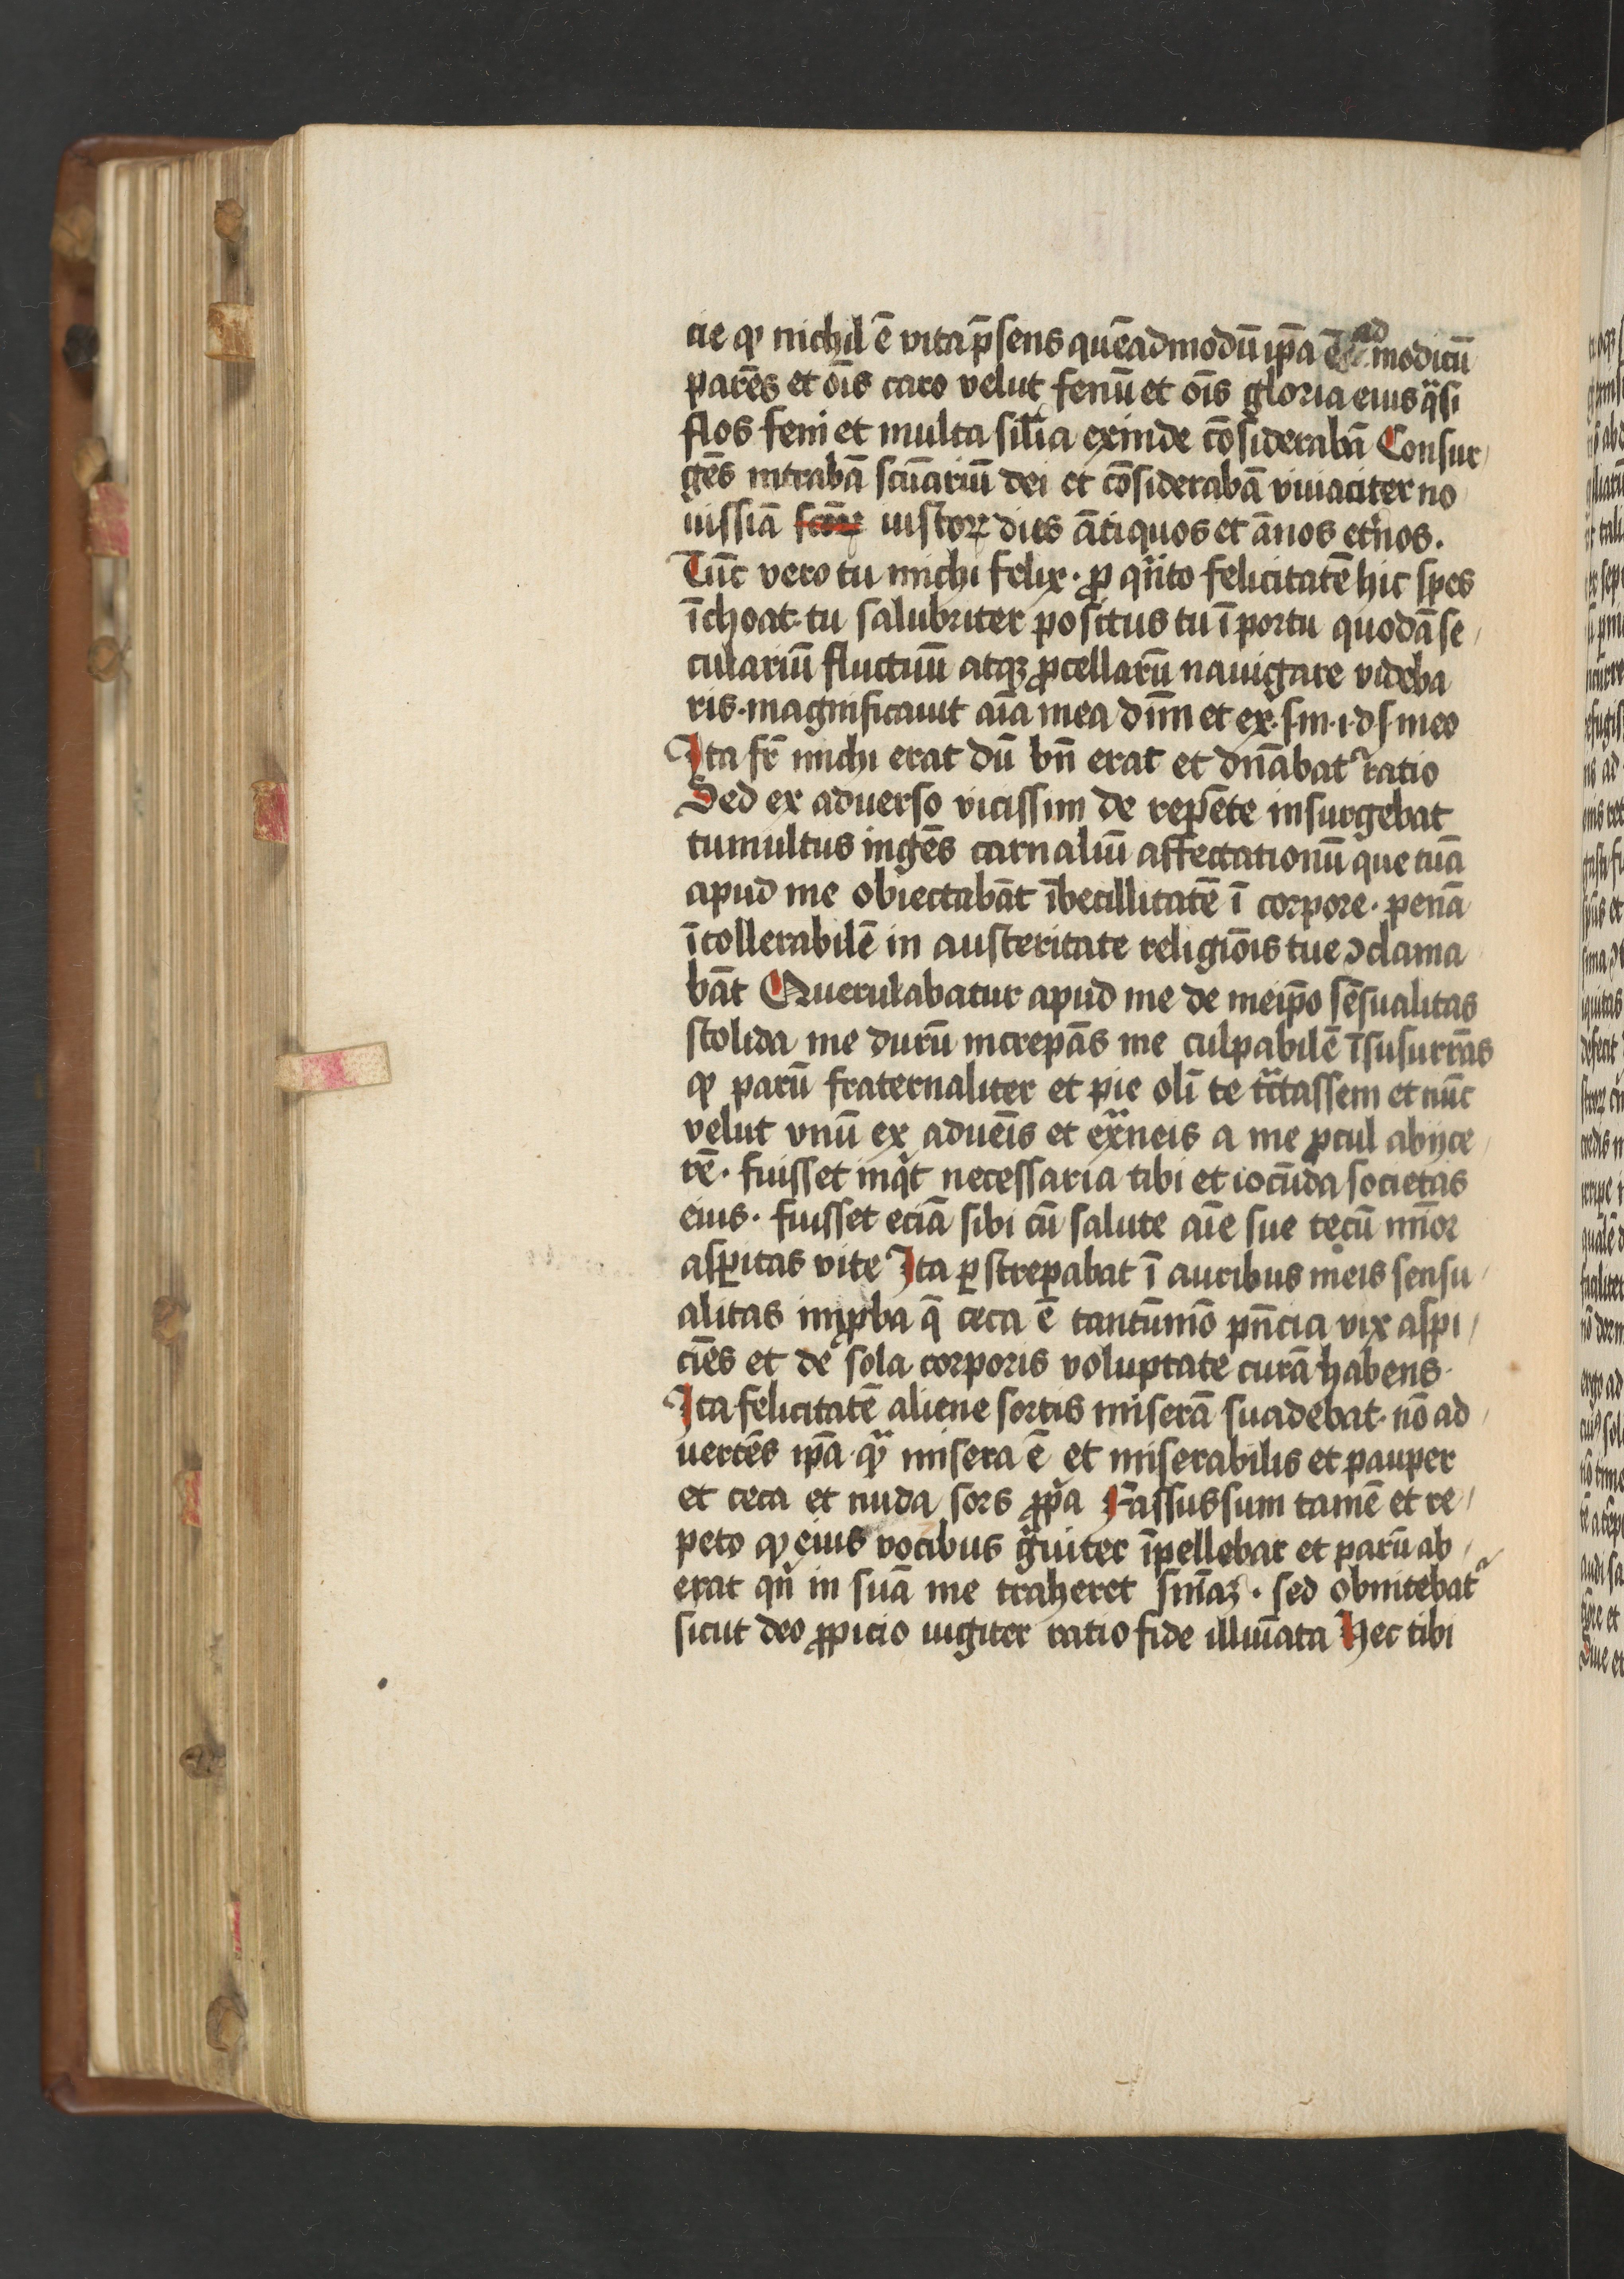 cie ꝙ nichil ē vita p̄sens quēadmodū ip̄a ē ad modicū
parēs et oīs caro velut fenū et oīs gloria eius q̈si
flos feni et multa silīa exinde cōsiderabā Consur
gēs intrabā scūariū dei et cōsiderabā viuaciter no
uissiā iustoꝝ dies ātiquos et ānos etn̄os.
Tūc vero tu michi felix. ꝓ qn̄to felicitatē hic spes
īchoat. tu salubriter positus tu ī portu quodā se
culariū fluctuū atqꝫ ꝓcellarū nauigare videba
ris. magnificauit aīa mea dn̄m et ex. s. m. i. d. s. meo
Ita fr̄ michi erat dū bn̄ erat et dn̄abat᷑ ratio
Sed ex aduerso vicissim de repēte insurgebat
tumultus ingēs carnaliū affectationū que tuā
apud me obiectabāt ībecillitatē ī corpore. penā
ītollerabilē in austeritate religiōis tue ꝯclama
bāt Querulabatur apud me de meip̄o sēsualitas
stolida me durū increpās me culpabilē īsusurrās
ꝙ parū fraternaliter et pie olī te tͣctassem et nūc
velut vnū ex adueīs et exͣneis a me ꝓcul abijce
rē. fuisset inqͥt necessaria tibi et iocūda societas
eius. fuisset eciā sibi cū salute aīe sue tecū mīor
asꝑitas vite Ita ꝑstrepabat ī auribus meis sensu
alitas imꝓba q̄ ceca ē tantūmō pn̄cia vix aspi
ciēs et de sola corporis voluptate curā habens
Ita felicitatē aliene sortis miserā suadebat. nō ad
uertēs ip̄a qͣ misera ē et miserabilis et pauper
et ceca et nuda sors ꝓp̄a Fassus sum tamē et re
peto ꝙ eius vocibus gͣuiter īpellebar et parū ab
erat qn̄ in suā me traheret sn̄iaꝫ. sed obnitebat᷑
sicut deo ꝓpicio iugiter ratio fide illuīata Hec tibi